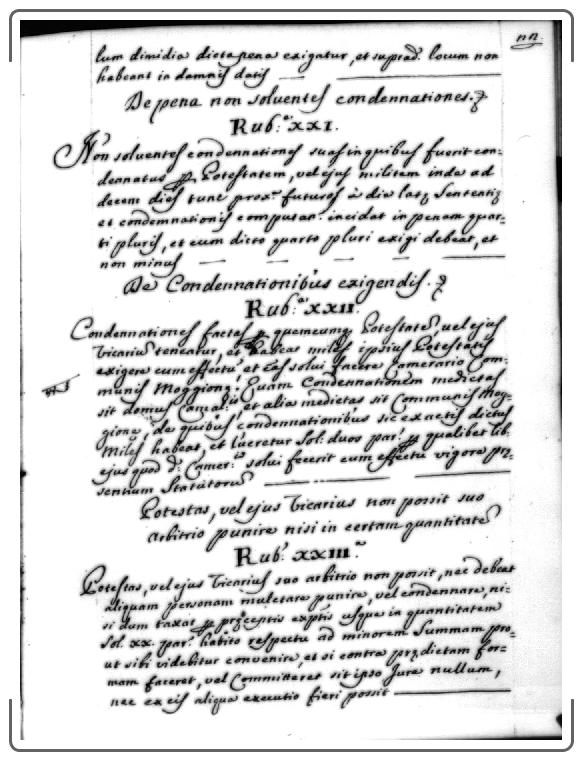 nn.
lum dimidia dicta pena exigatur, et suprad. locum non
habeant in damnis datis
De pena non solventes condennationes.
Rub.ª XXI.
Non solventes condennationes suas in quibus fuerit con:
dennatus per Potestatem, vel ejus militem inde ad
decem dies tunc prox.º futuros à die latę Sententię
et condemnationis computan. incidat in penam quar:
ti pluris, et eum dicto quarto pluri exigi debeat, et
non minus
De Condennationibus exigendis.
Rub.ª XXII.
Condennationes factas per quemcunq Potestate, vel ejus
Vicariu teneatur, et habeas miles ipsius Potestatis
exigere cum effectu et eas solui facere Camerario Com:
munis Moggiong: Quam Condennationem medietas
sit domus Camal. et alia medietas sit Communis Mog:
gione, de quibus condennationibus sic exactis dictus
Miles habeat, et lucretur Sol. duos par. per qualibet lib.
ejus quod d. Camer. solui fecerit cum effectu vigore prę
sentium Statutoru
Potestas, vel ejus Vicarius non possit suo
arbitrio punire nisi in certam quantitate
Rub. XXIII.ª
Potestas, vel ejus Vicarius suo arbitrio non possit, nec debeat
aliquam personam mulctare punire, vel condennare, ni:
si dum taxat per pręceptis exptis usque in quantitatem
Sol. xx. par. habito respectu ad minorem Summam pro:
ut sibi videbitur convenire, et si contra prędictam for:
mam faceret, vel Committeret sit ipso Jure nullum,
nec ex eis aliqua executio fieri possit